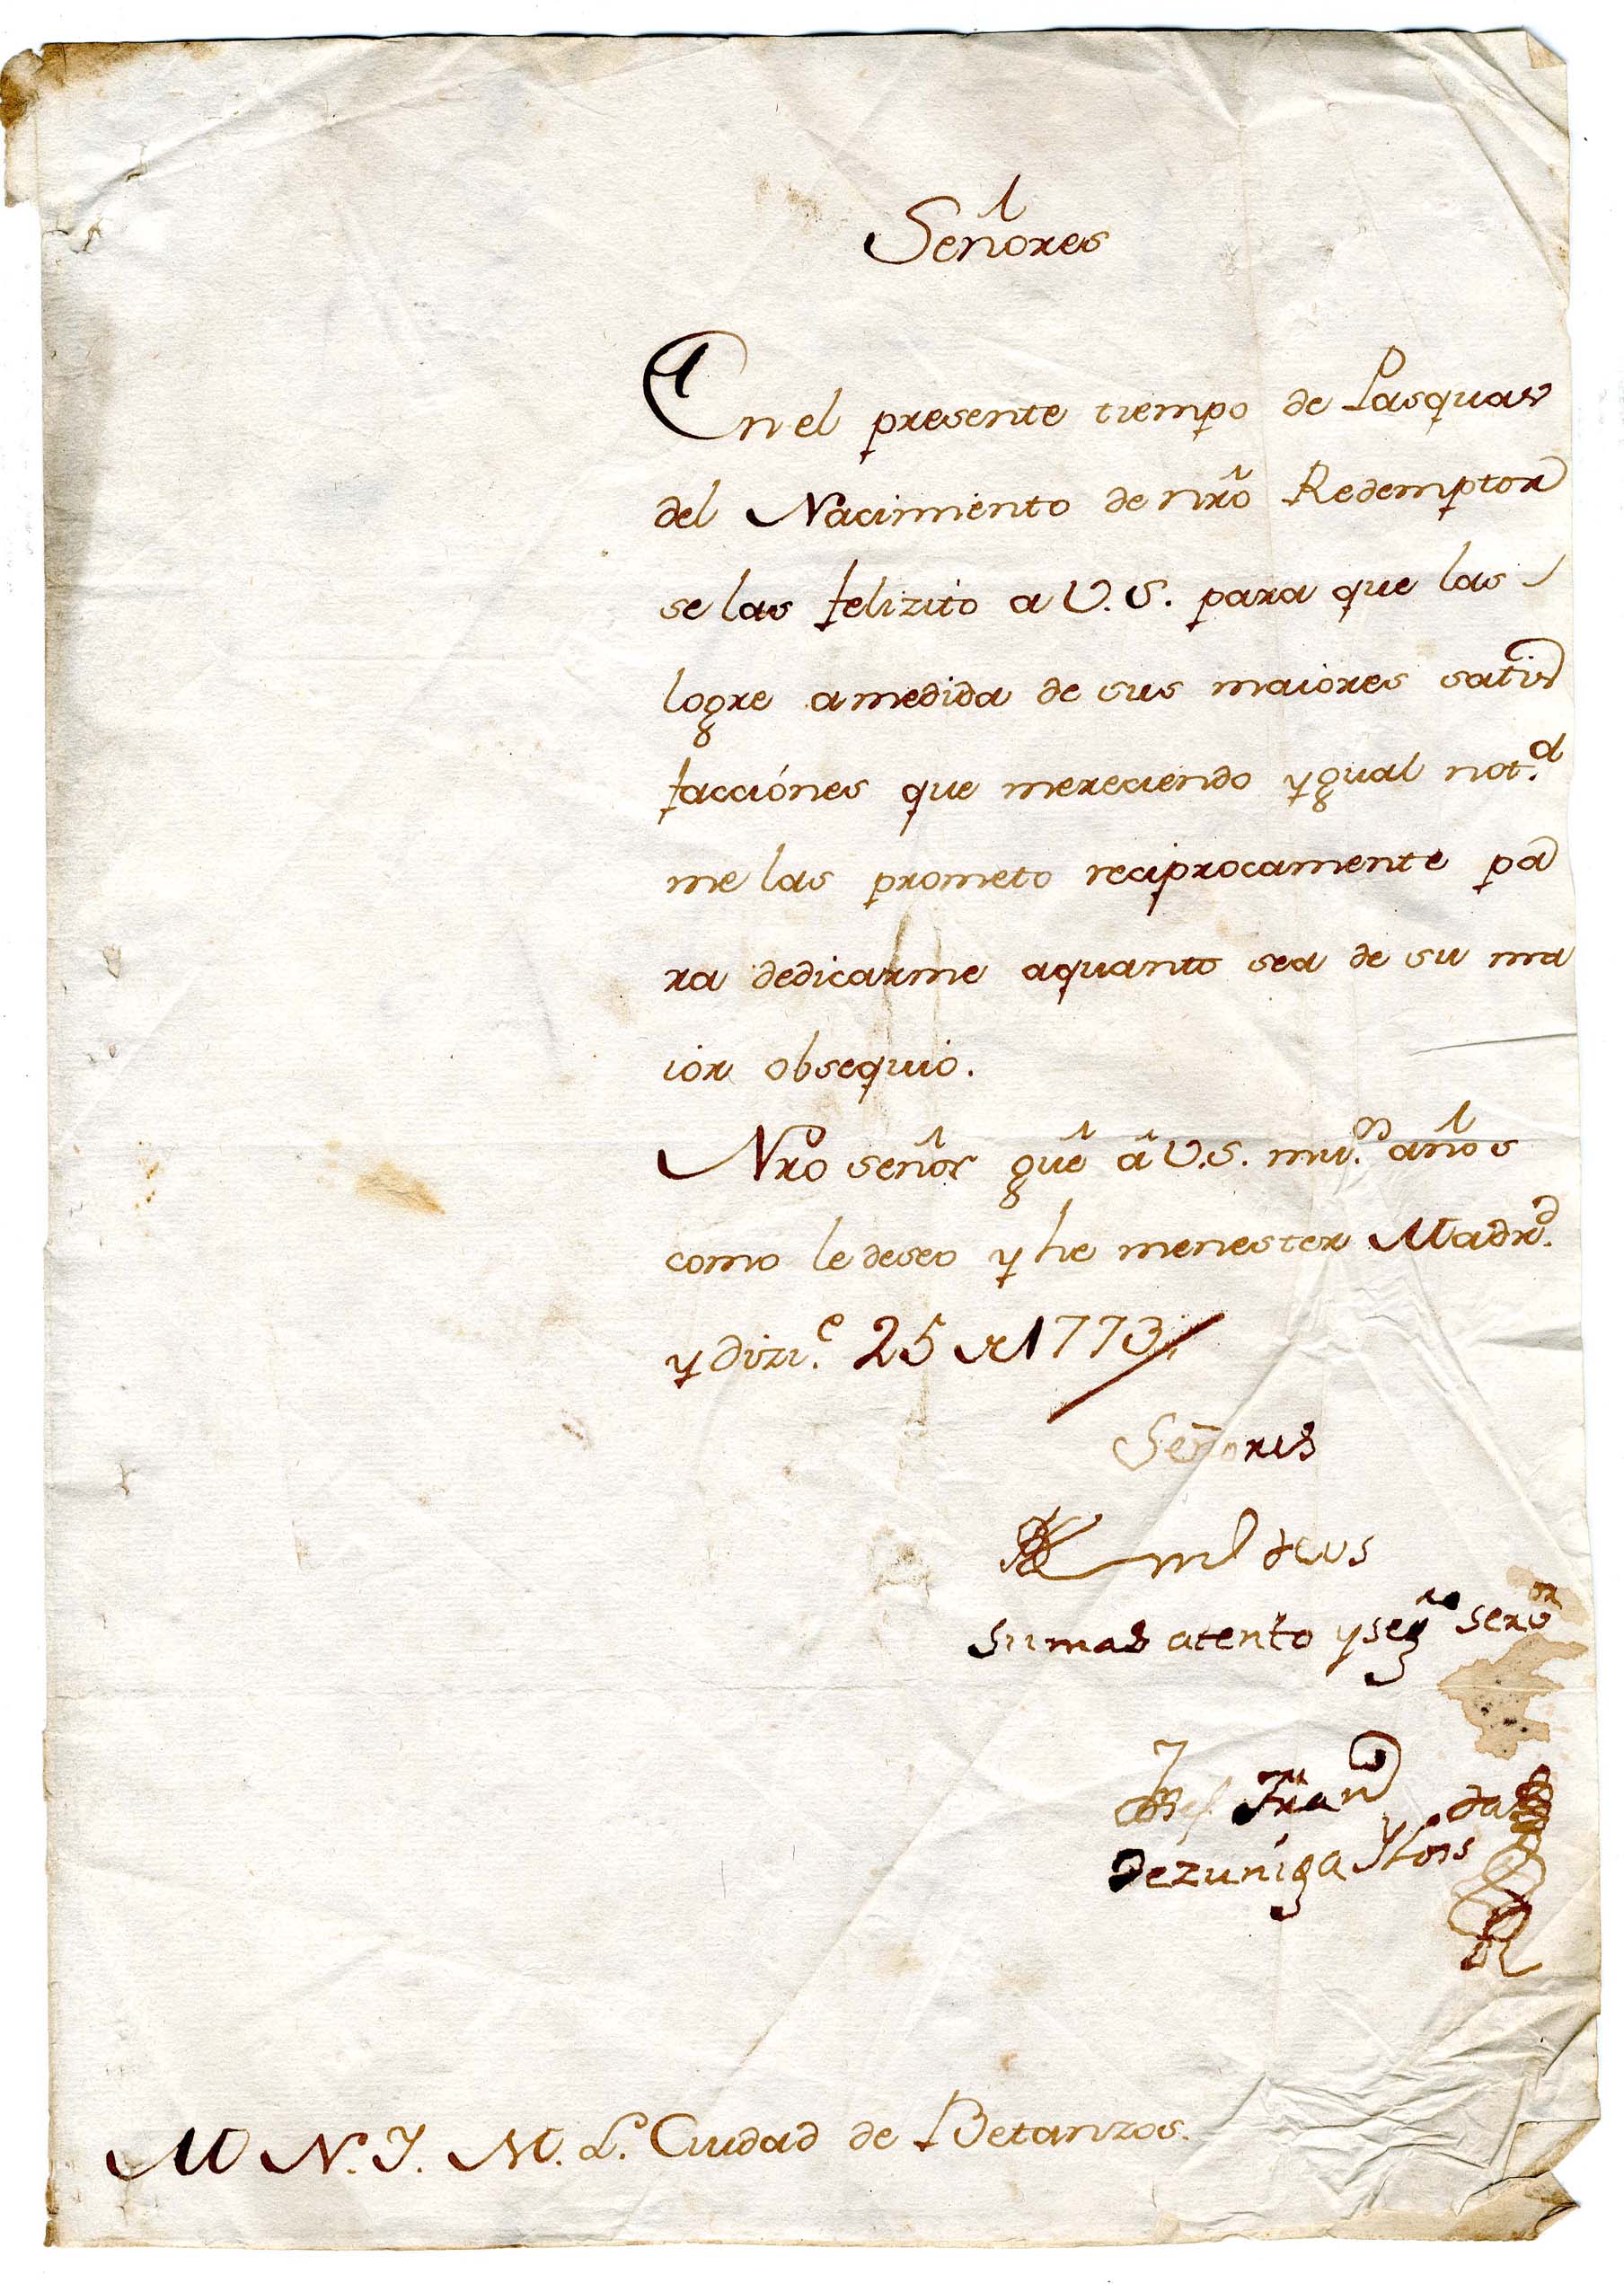 Señores
En el presente tiempo de Pasquas
del Nacimiento de nrô Redemptor
se las felizito a V.S. para que las
logre a medida de sus maiores satis
facciónes que mereciendo ygual not.ª
me las prometo reciprocamente pa
ra dedicarme a quanto sea de su ma
ior obsequio.
Nro señor gûe â V.S. mu.s años
como le deseo y he menester Madr.d
y Dizi.e 25 de 1773
Señores
BLm de VS
su mas atento y seg.ro serv.or
Josef Fran.co
de zuniga y Lois
M N. Y. M. L. Ciudad de Betanzos.